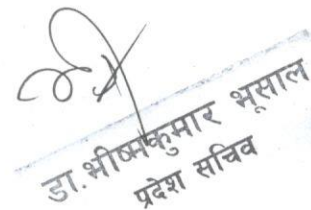 डा.भीष्मकुमार भूसाल
प्रदेश सचिव